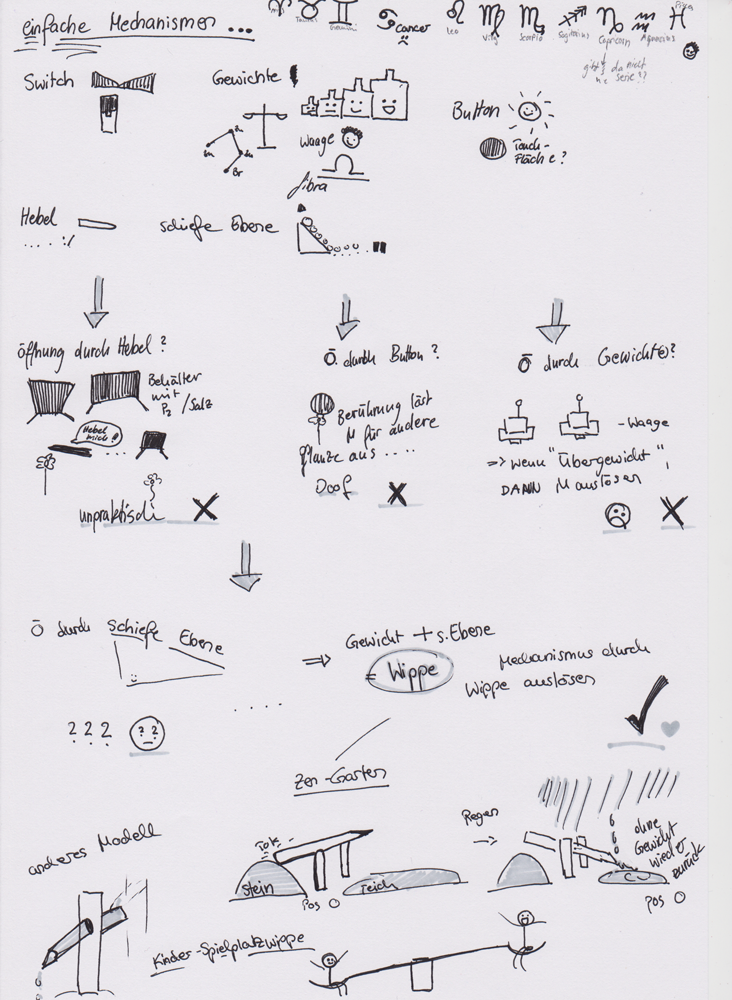 einfache Mechanismen ...
Taurus
Cancer
Leo
Virgo
Scorpio
Sagittarius
Capricorn
Aquarius
gibt's da nicht
ne Serie??
Switch
Gewichte
Waage
Libra
Button
Touch-
Fläche?
Hebel
.... :/
schiefe Ebene
Öffnung durch Hebel?
Behälter
mit
P2 /Salz
Hebel
mich!
unpraktisch X
Ö. durch Button?
Berührung löst
M für andere
Pflanze aus ....
Doof X
Ö durch Gewicht(e)?
- Waage
=> wenn "Übergewicht",
DANN M auslösen
X
Ö durch Schiefe Ebene
....
? ? ?
? ?
=> Gewicht + s.Ebene
= Wippe
Mechanismus durch
Wippe auslösen
Zen-Garten
Tok
Stein
Teich
Pos O
Regen
ohne
Gewicht
wieder
zurück
Pos O
anderes Modell
Kinder-Spielplatzwippe